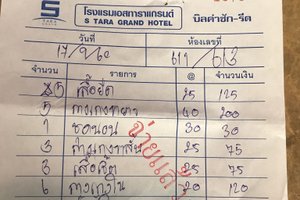 โรงแรมเอสทาราแกรนด์ บิลค่าซัก-รีด
S TARA GRAND HOTEL
วันที่ ห้องเลขที่
17/
จำนวน รายการ @ จำนวนเงิน
5 เสื้อยืด 25 125
5 กางเกงขายาว 40 200
1 ชุดนอน 30 30
3 กางเกงขาสั้น 25 75
3 เสื้อเชิ้ต 25 75
6 กางเกงใน 20 120
จ่ายแล้ว